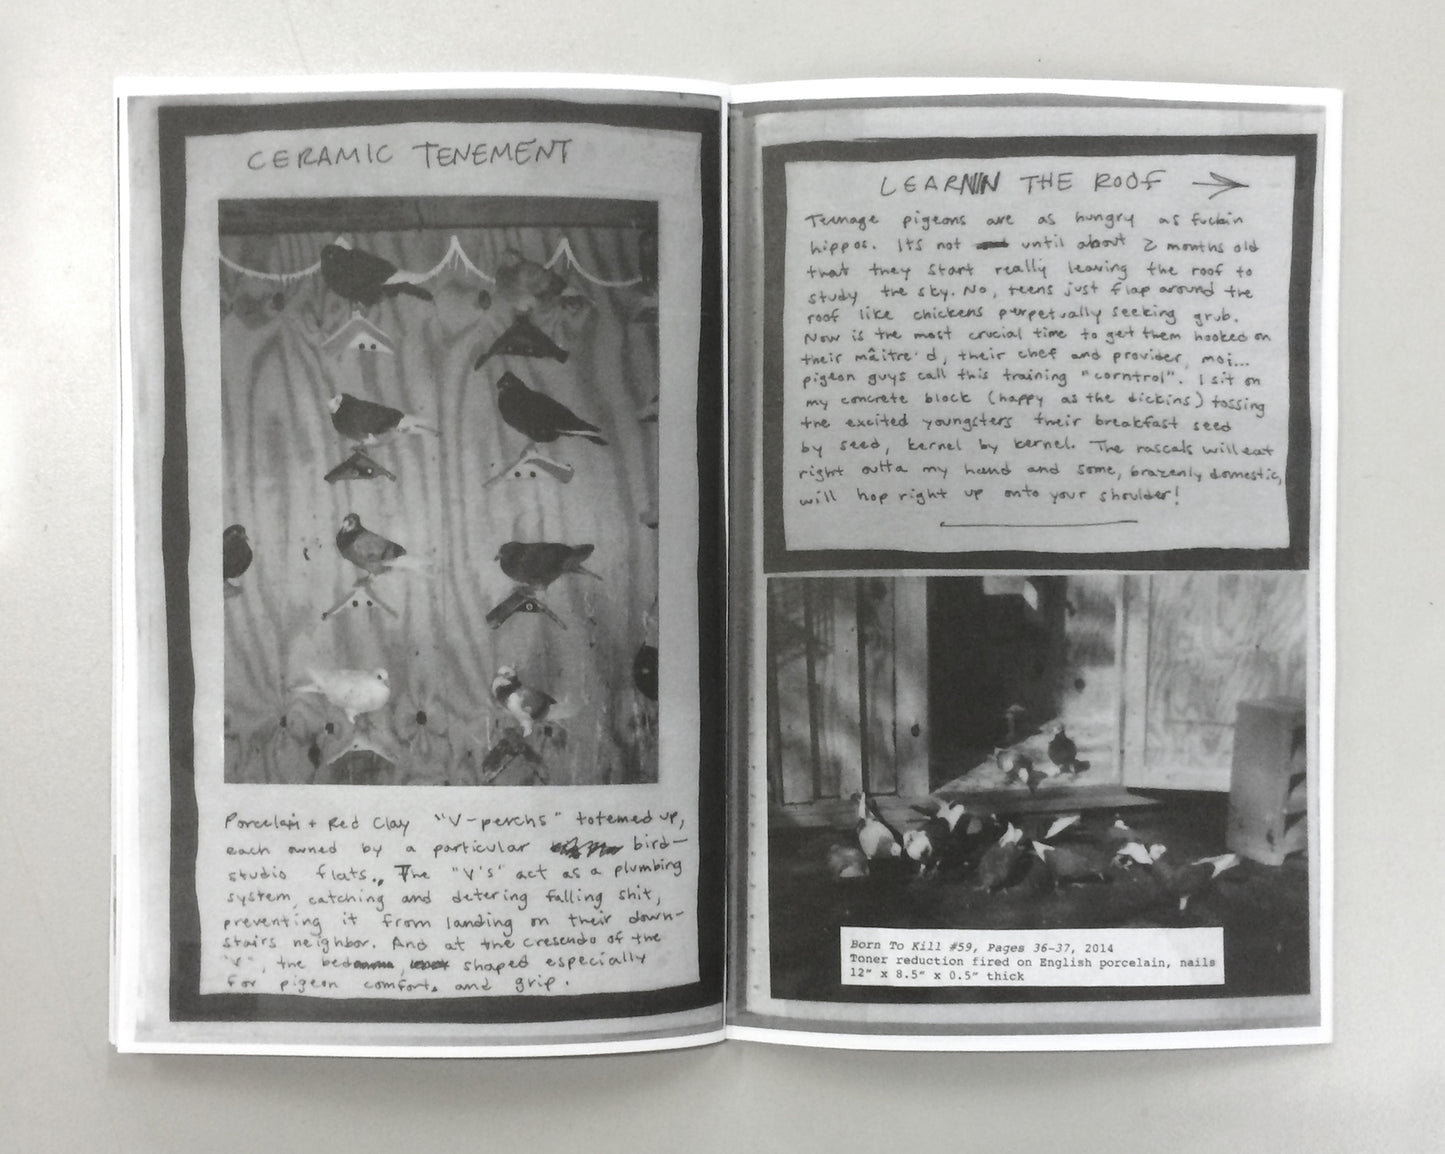 CERAMIC TENEMENT
Porcelain + Red Clay "V-perchs" totemed up,
each owned by a particular bird-
studio flats. The "V's" act as a plumbing
system, catching and detering falling shit,
preventing it from landing on their down-
stairs neighbor. And at the cresendo of the
"V", the bed shaped especially
for pigeon comfort, and grip.
LEARNIN THE ROOF →
Teenage pigeons are as hungry as fuckin
hippos. Its not until about 2 months old
that they start really leaving the roof to
study the sky. No, teens just flap around the
roof like chickens perpetually seeking grub.
Now is the most crucial time to get them hooked on
their mâitre'd, their chef and provider, moi...
pigeon guys call this training "corntrol". I sit on
my concrete block (happy as the dickins) tossing
the excited youngsters their breakfast seed
by seed, kernel by kernel. The rascals will eat
right outta my hand and some, brazenly domestic,
will hop right up onto your shoulder!
Born To Kill #59, Pages 36-37, 2014
Toner reduction fired on English porcelain, nails
12" x 8.5" x 0.5" thick